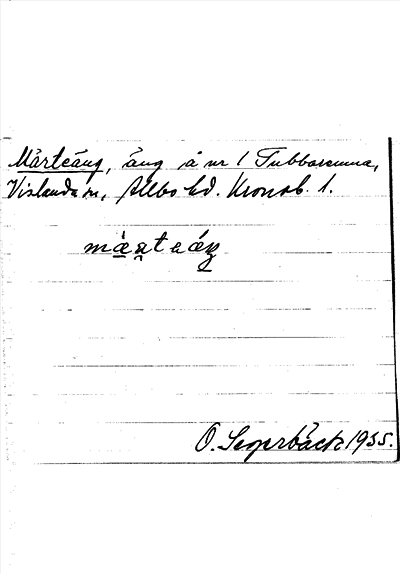 Mårteäng, äng å nr 1 Tubbaremma,
Vislanda sn, Allbo hd. Kronob. l.
O. Segerbäck 1955.